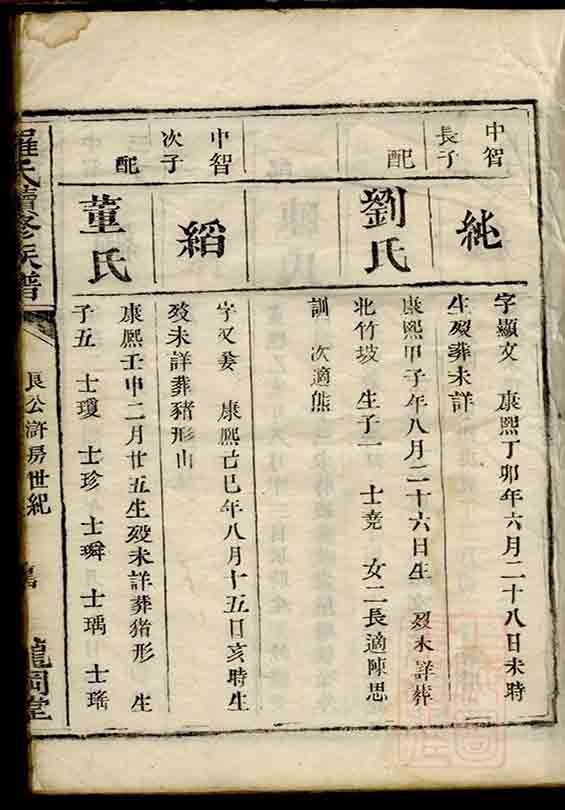 中智
長子
純
字顯文 康熙丁卯年六月二十八日未時
生歿葬未詳
配
劉氏
康熙甲子年八月二十六日生 歿未詳葬
北竹坡 生子一 士堯 女二長適陳思
訓 次適熊
中智
次子
縚
字又 康熙己巳年八月十五日亥時生
歿未詳葬豬形山
配
董氏
康熙壬申二月廿五生歿未詳葬豬形 生
子五 士瓊 士珍 士瞬 士瑀 士瑤
羅氏續修族譜
良公滸房世紀
龍岡堂